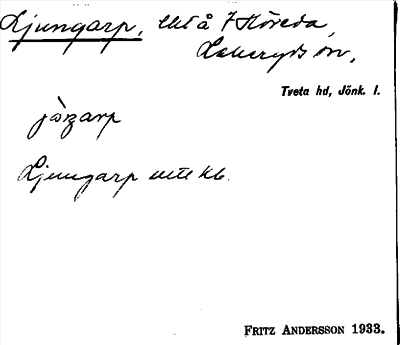 Ljungarp, utl å 7 Flöxeda,
Lekeryds sn,
Tveta hd, Jönk. l.
jòŋarp
Ljungarp utl kb.
FRITZ ANDERSSON 1933.